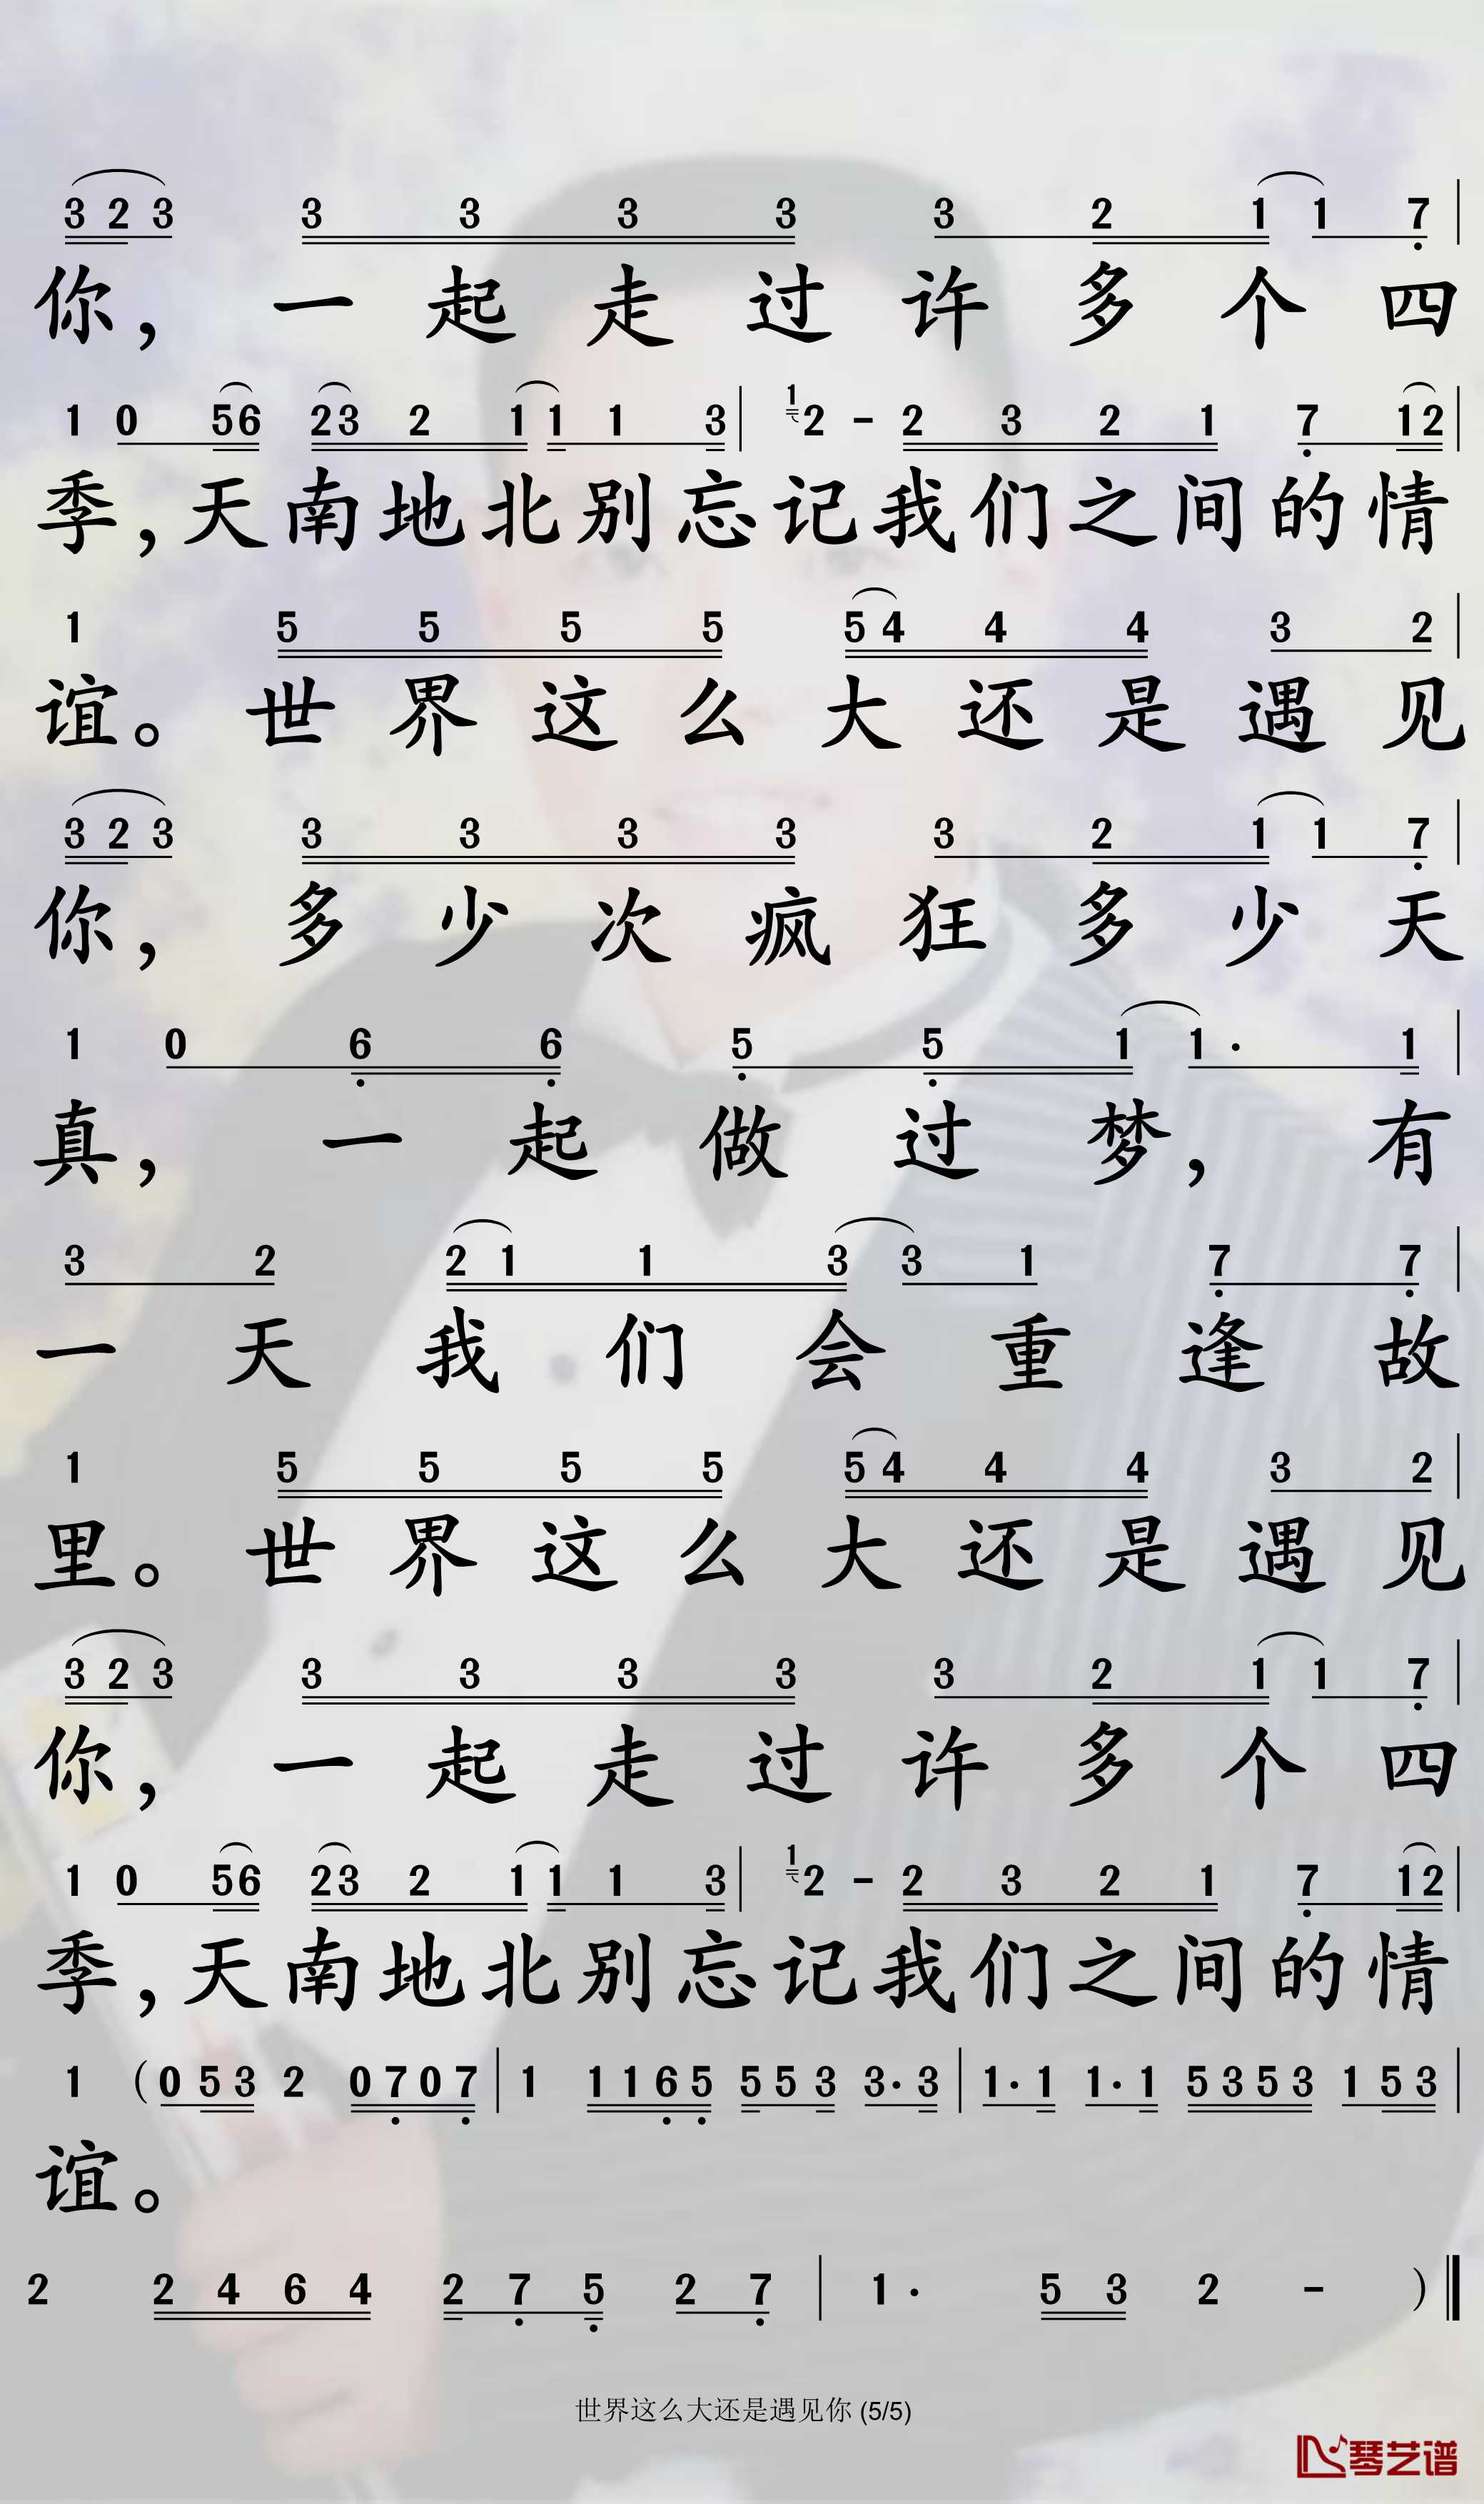 3 2 3 3 3 3 3 3 2 1 1 7
你，一起走过许多个四
1 0 56 23 2 1 1 1 3 | 1 2 - 2 3 2 1 7 12
季，天南地北别忘记我们之间的情
1 5 5 5 5 5 4 4 4 3 2
谊。世界这么大还是遇见
3 2 3 3 3 3 3 3 2 1 1 7
你，多少次疯狂多少天
1 0 6 6 5 5 1 1· 1
真，一起做过梦，有
3 2 2 1 1 3 3 1 7 7
一天我们会重逢故
1 5 5 5 5 5 4 4 4 3 2
里。世界这么大还是遇见
3 2 3 3 3 3 3 3 2 1 1 7
你，一起走过许多个四
1 0 56 23 2 1 1 1 3 | 1 2 - 2 3 2 1 7 12
季，天南地北别忘记我们之间的情
1 (0 5 3 2 0 7 0 7 | 1 1 1 6 5 5 5 3 3· 3 | 1· 1 1· 1 5 3 5 3 1 5 3
谊。
2 2 4 6 4 2 7 5 2 7 | 1· 5 3 2 - )
世界这么大还是遇见你 (5/5)
琴艺谱